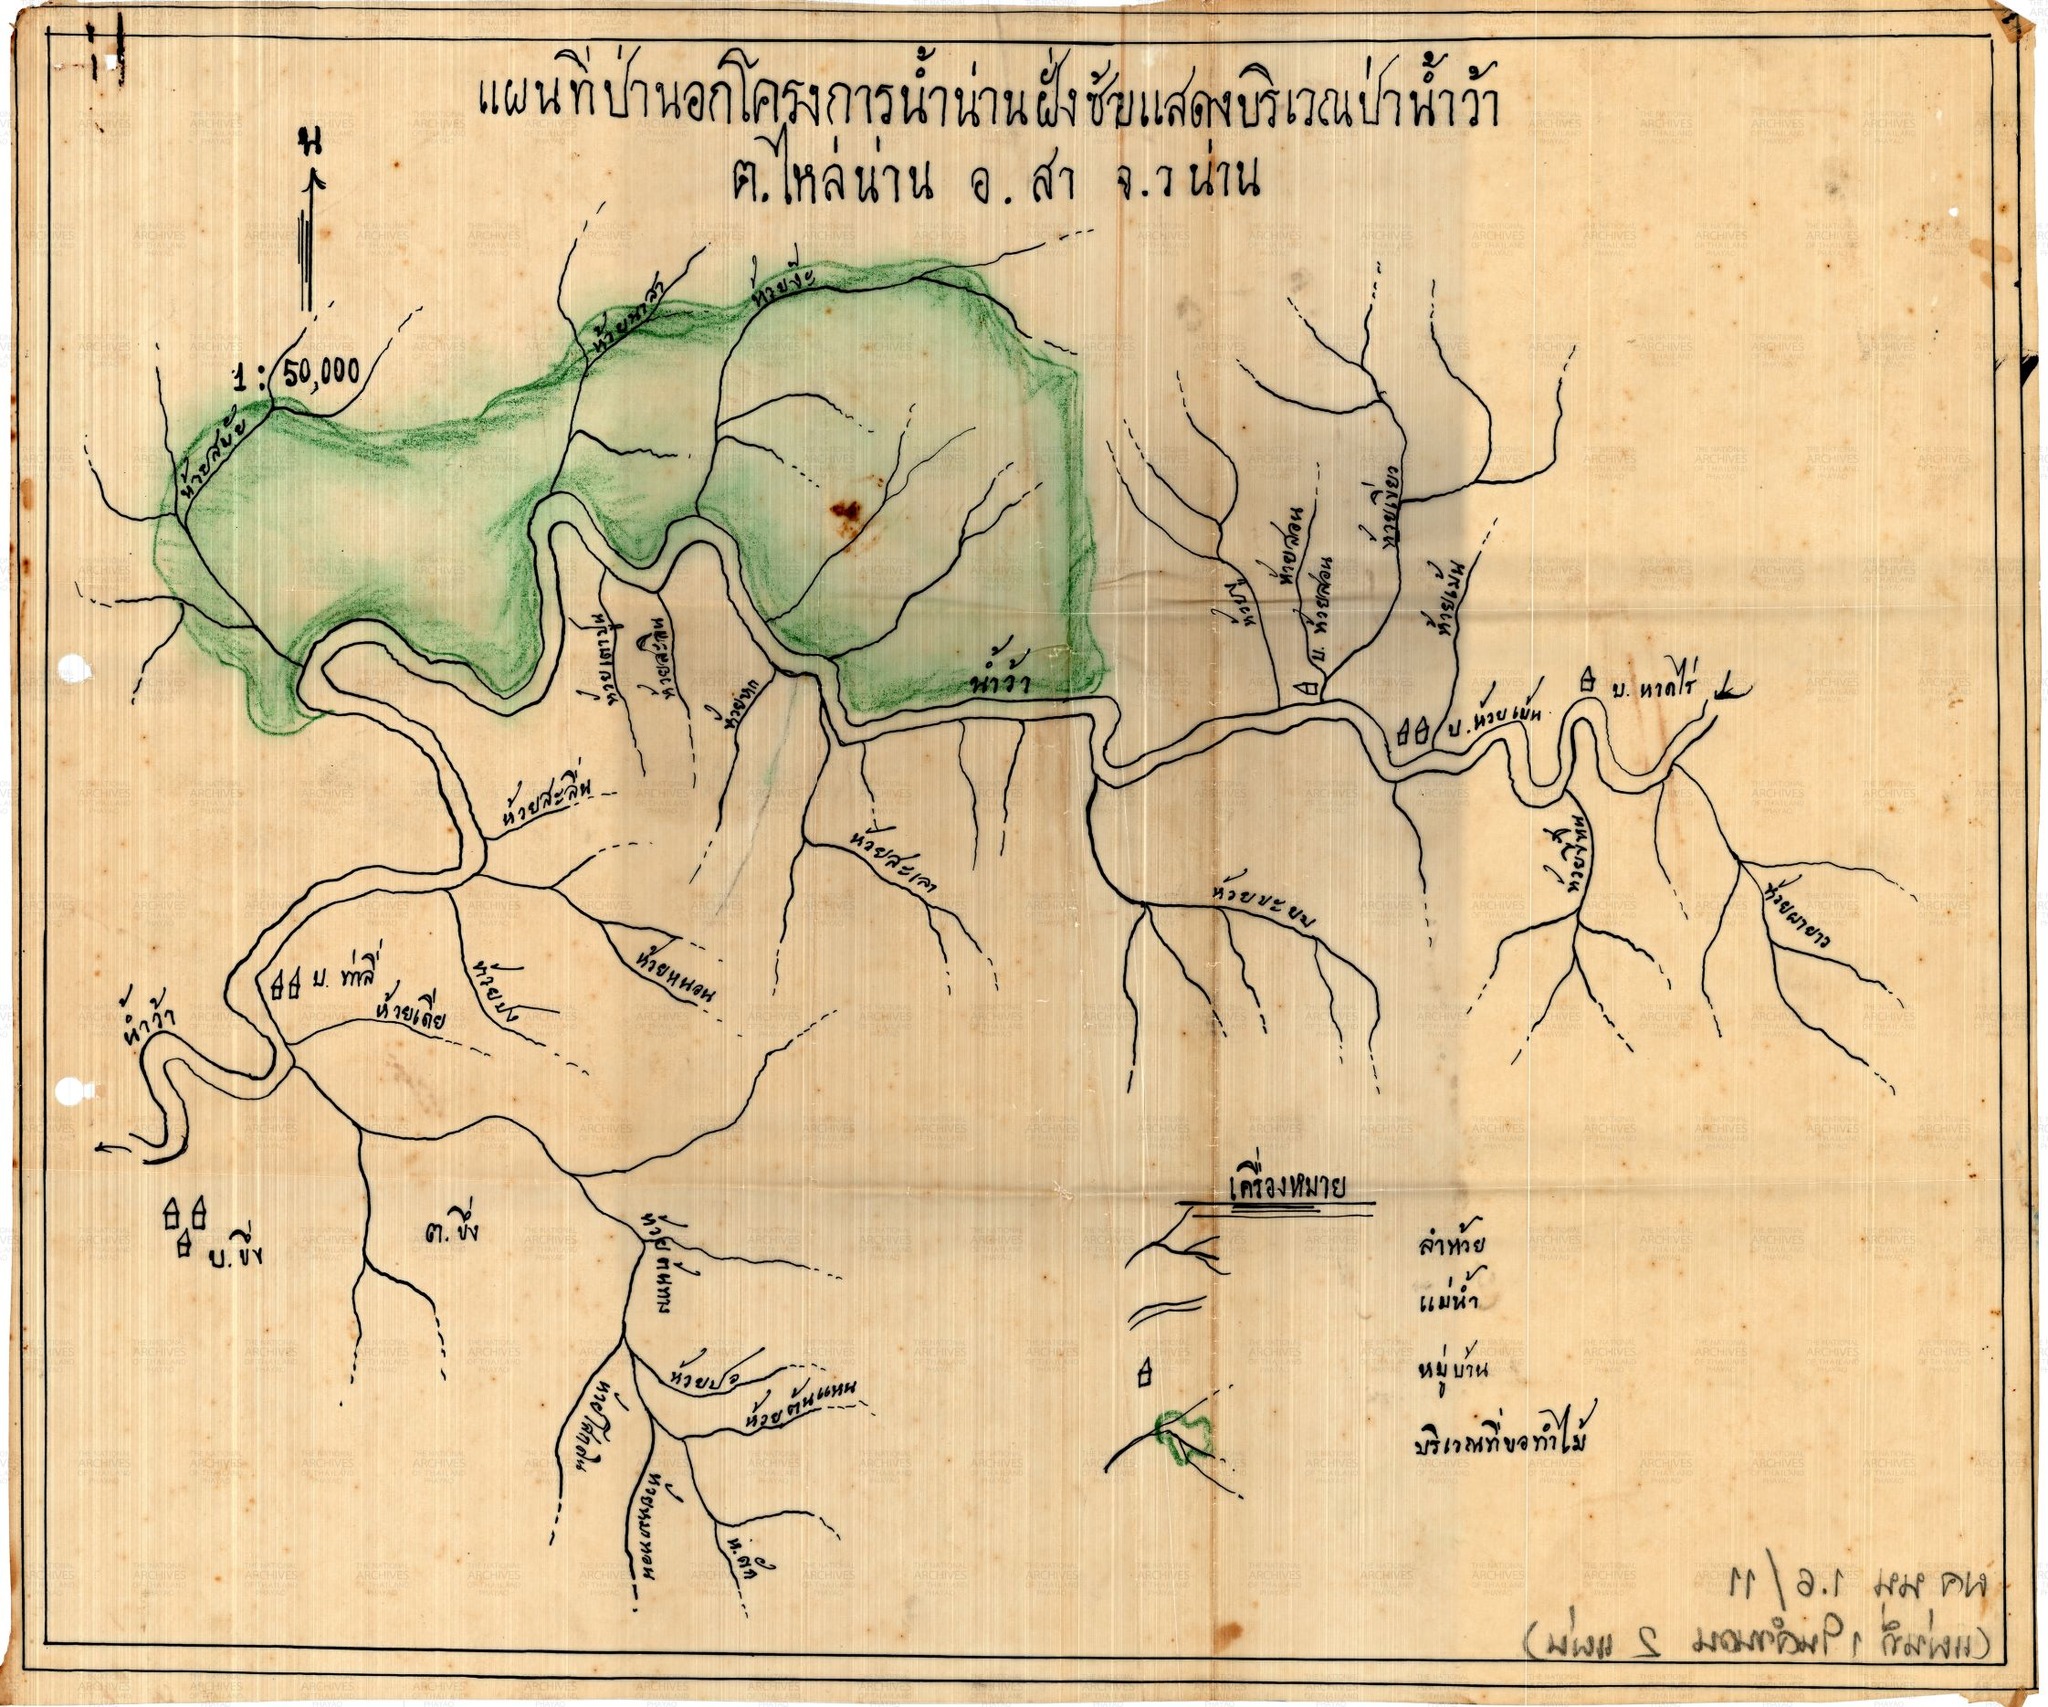 แผนที่ป่านอกโครงการน้ำน่านฝั่งซ้ายแสดงบริเวณป่าน้ำว้า
ต.ไหล่น่าน อ. สา จ.ว น่าน
น
1 : 50,000
ห้วยสบ้า
ห้วยนาสา
ห้วยงึะ
น้ำว้า
ห้วยสอน
บ. ห้วยสอน
ห้วยเม้น
บ. ห้วยเม้น
บ. หาดไร่
ห้วยสะลื่น
ห้วยสะเลา
ห้วยขะยบ
ห้วยผายาว
ห้วยหนอน
ห้วยปง
บ. ท่าลี่
ห้วยเดีย
น้ำว้า
บ.ขึ่ง
ต.ขึ่ง
ห้วยต้นทาง
ห้วยปอ
ห้วยต้นแหน
ห้วยโศกเลิน
ห้วยหมาหอน
ห.ตึก
เครื่องหมาย
ลำห้วย
แม่น้ำ
หมู่บ้าน
บริเวณที่ขอทำไม้
ผค นน 1.6/11
(แผ่นที่ 1 ในจำนวน 2 แผ่น)